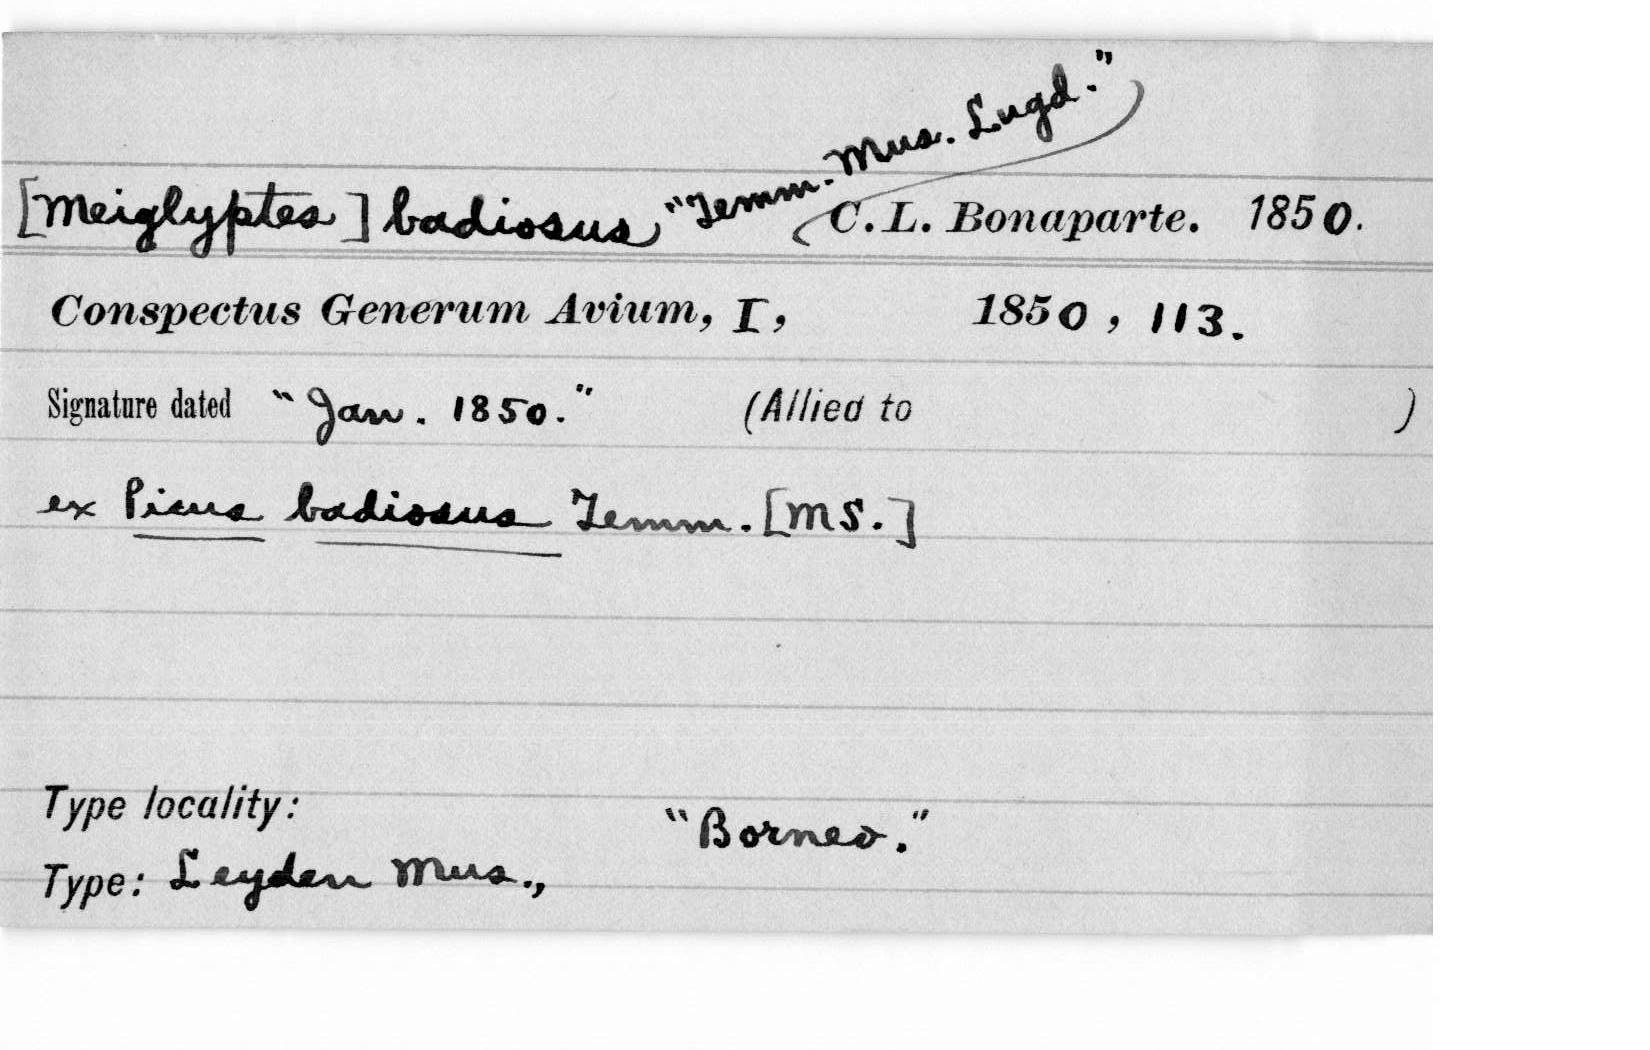 [Meiglyptes] badiosus "Temm. Mus. Lugd." C. L. Bonaparte. 1850.
Conspectus Generum Avium, I, 1850, 113.
Signature dated "Jan. 1850." (Allied to )
ex Picus badiosus Temm. [MS.]
Type locality: "Borneo."
Type: Leyden Mus.,